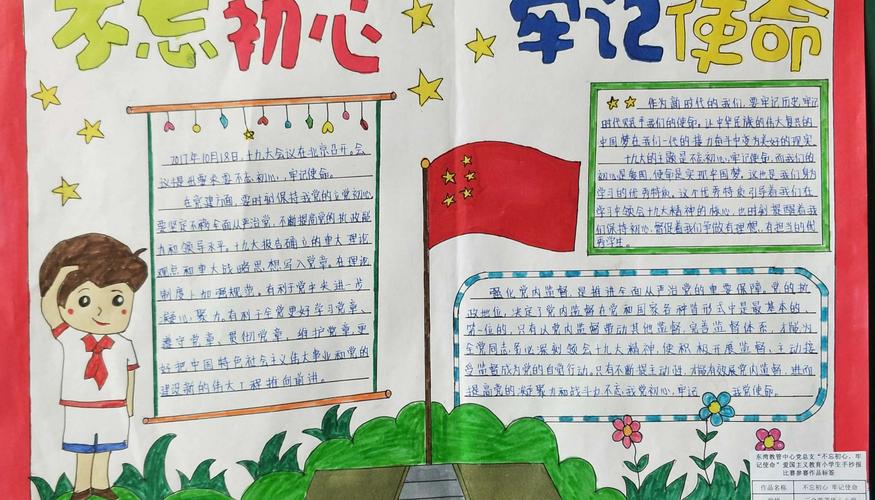 不忘初心
牢记使命
2017年10月18日,十九大会议在北京召开。会
议提出要求要不忘初心,牢记使命。
在党建方面,要时刻保持我党的立党初心
要坚定不移全面从严治党,不断提高党的执政能
力和领导水平。十九大报告确立的重大理论
观点和重大战略思想写入党章,在理论
制度上加强规范。有利于党中央进一步
凝心聚力,有利于全党更好学习党章、
遵守党章、贯彻党章、维护党章,更
好把中国特色社会主义伟大事业和党的
建设新的伟大工程推向前进。
作为新时代的我们,要牢记历史,牢记
时代赋予我们的使命,让中华民族的伟大复兴的
中国梦在我们一代的接力奋斗中变为美好的现实
十九大的主题是不忘初心,牢记使命,而我们的
初心是爱国,使命是实现中国梦,这也是我们身为
学习的优秀特质。这个优秀特质引导着我们在
学习中领会十九大精神的核心,也时刻提醒着我
们保持初心,督促着我们争做有理想、有担当的优
秀学生。
强化党内监督,是推进全面从严治党的重要保障。党的执
政地位,决定了党内监督在党和国家各种监督形式中是最基本的、
第一位的,只有以党内监督带动其他监督,完善监督体系,才能为
全党同志务必深刻领会十九大精神,使积极开展监督、主动接
受监督成为党的自觉行动。只有不断提主动性,才能有效展党内监督,进而
提高党的凝聚力和战斗力不忘我党初心,牢记 我党使命。
东湾教管中心党总支“不忘初心、牢
记使命”爱国主义教育小学生手抄报
比赛参赛作品标签
作品名称 不忘初心 牢记使命